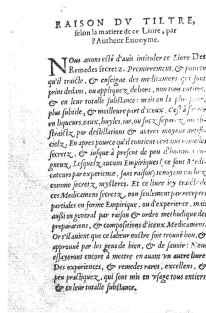 RAISON DV TILTRE,
selon la matiere de ce Liure, par
l'Autheur Euonyme.
NOus auons esté d'auis intituler ce Liure Des
Remedes secretz. Premierement, & pource
qu'il traicte, & enseigne des medicamens qui sont
prins dedans, ou appliquez dehors, non tous entiers,
& en leur totalle substance: mais en la plus pure,
plus subtile, & meilleure part d'iceux, c'est à sçauoir
en liqueurs, eaux, huyles, sucz, separez, ou ex-
straictz, par distillations & autres moyens artifi-
cielz. En apres pource qu'il contient vertus
secretz, & iusque à present de peu d'hommes
gneuz. Lesquelz aucuns Empiriques (ce sont Medi-
cateurs par experience, sans raison) tenoyent cachez
comme secretz mysteres. Et ce liure icy traicte de
ces Medicamens secretz, non seulement par receptes
partiales en forme Empirique, ou d'experience, mais
aussi en general par raison & ordre methodique des
preparations, & compositions d'iceux Medicamens.
Or s'il auient que ce labeur nostre soit trouué bon, &
approuué par les gens de bien, & de sauoir: Nous
essayerons encor à mettre en auant vn autre liure
Des experiences, & remedes rares, excellens, &
peu practiquez, qui sont mis en vsage tous entiers
& en leur totalle substance.